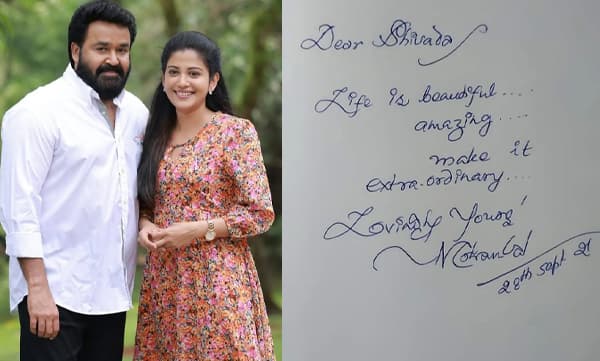 Dear Shivada
Life is beautiful....
amazing....
make it
extra.ordinary....
Lovingly Yours'
Mohanlal
28th Sept 21